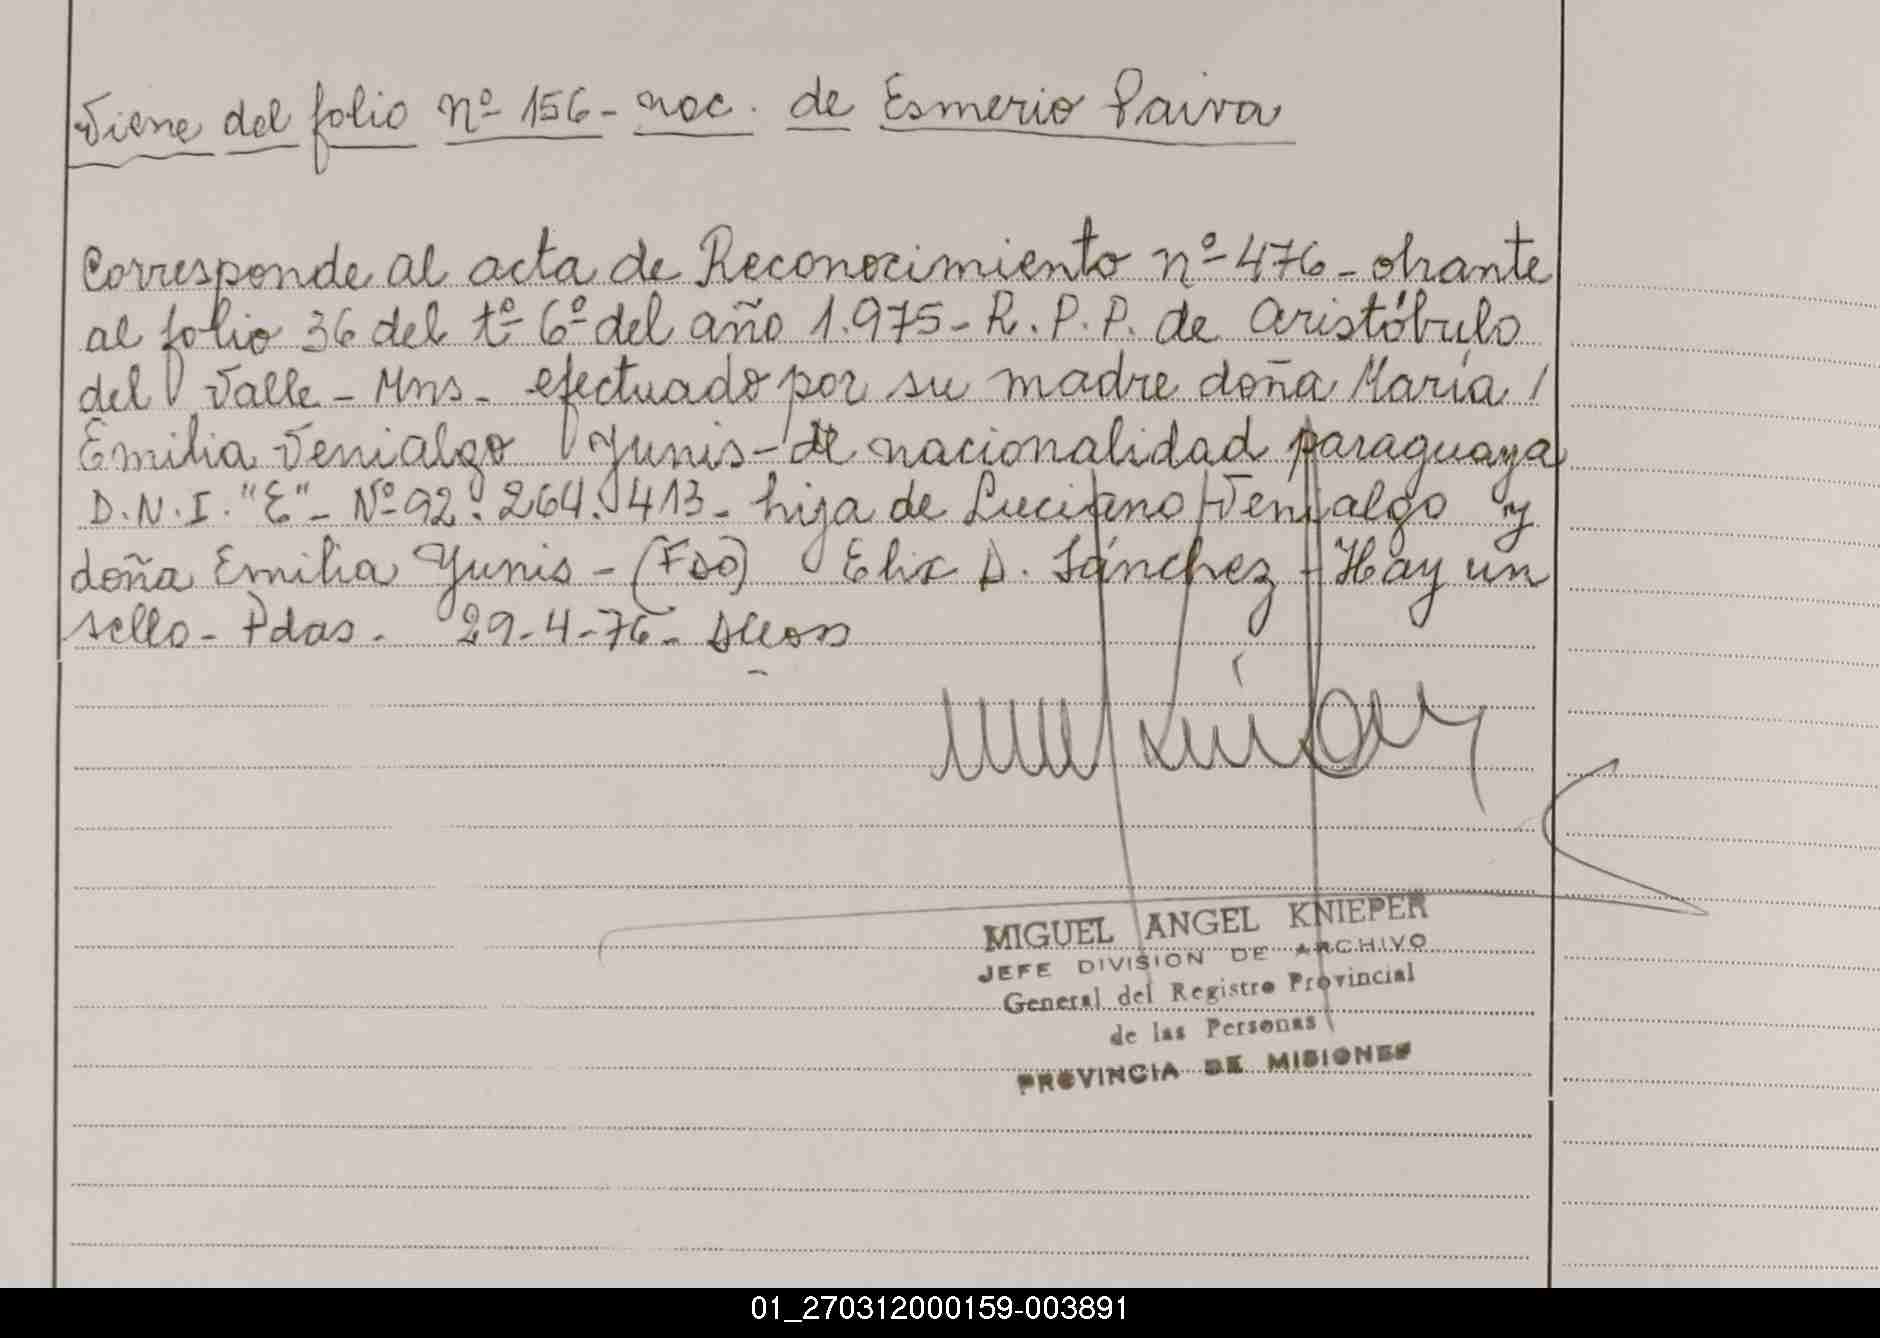 Viene del folio nº 156 - nac. de Esmerio Paiva
Corresponde al acta de Reconocimiento nº 476 - obrante
al folio 36 del tº 6º del año 1.975 - R.P.P. de Aristóbulo
del Valle - Mns - efectuado por su madre doña María /
Emilia Venialgo Yunis - de nacionalidad paraguaya
D.N.I. "E" - Nº 92.264.413 - hija de Luciano Venialgo y
doña Emilia Yunis - (Fdo) Elix D. Sánchez - Hay un
sello - Pdas. 29-4-76 -
MIGUEL ANGEL KNIEPER
JEFE DIVISION DE ARCHIVO
General del Registro Provincial
de las Personas
PROVINCIA DE MISIONES
01_270312000159-003891